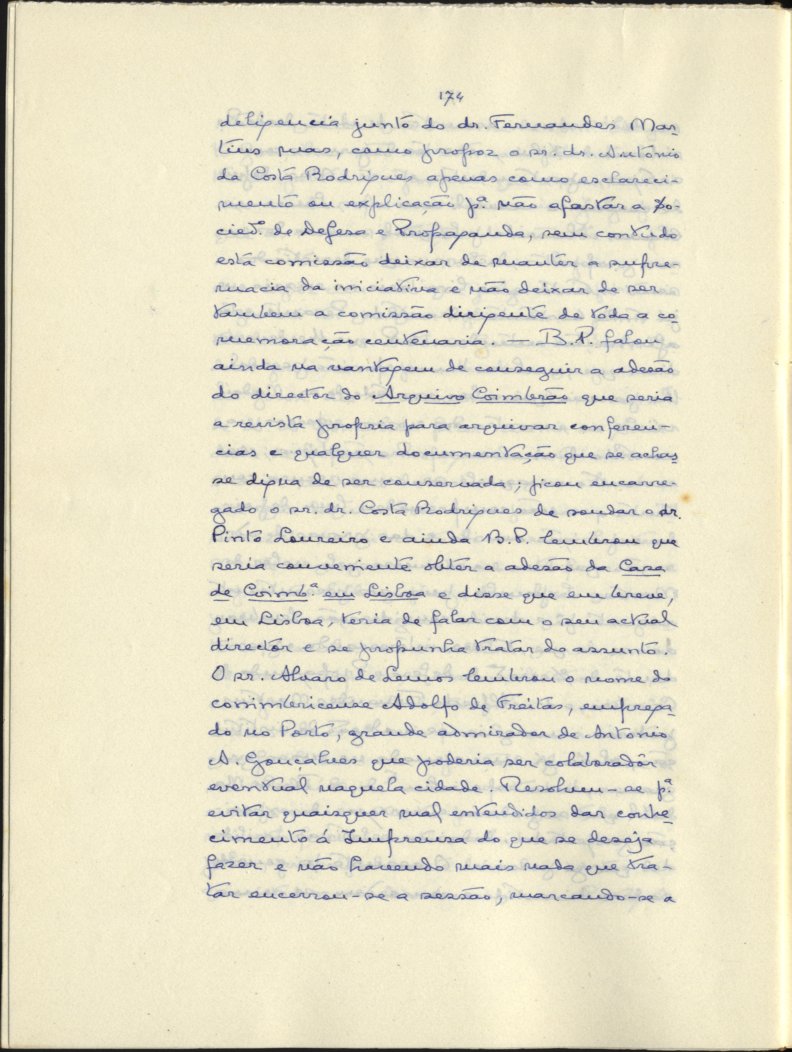 174
deligencia junto do dr. Fernandes Mar-
tins mas, como propoz o sr. dr. Antonio
da Costa Rodrigues apenas como esclareci-
mento ou explicação p.ª não afastar a So-
cied.e de Defesa e Propaganda, sem contudo
esta comissão deixar de manter a supre-
macia da iniciativa e não deixar de ser
tambem a comissão dirigente de toda a co-
memoração centenaria. — B.P. falou
ainda na vantagem de conseguir a adesão
do director do Arquivo Coimbrão que seria
a revista propria para arquivar conferen-
cias e qualquer documentação que se achas-
se digna de ser conservada; ficou encarre-
gado o sr. dr. Costa Rodrigues de sondar o dr.
Pinto Loureiro e ainda B.P. lembrou que
seria conveniente obter a adesão da Casa
de Coimb.ª em Lisboa e disse que em breve,
em Lisboa, teria de falar com o seu actual
director e se propunha tratar do assunto.
O sr. Alvaro de Lemos lembrou o nome do
conimbricense Adolfo de Freitas, emprega-
do no Porto, grande admirador de Antonio
A. Gonçalves que poderia ser colaboradôr
eventual naquela cidade. Resolveu-se p.ª
evitar quaisquer mal entendidos dar conhe-
cimento á Imprensa do que se deseja
fazer e não havendo mais nada que tra-
tar encerrou-se a sessão, marcando-se a